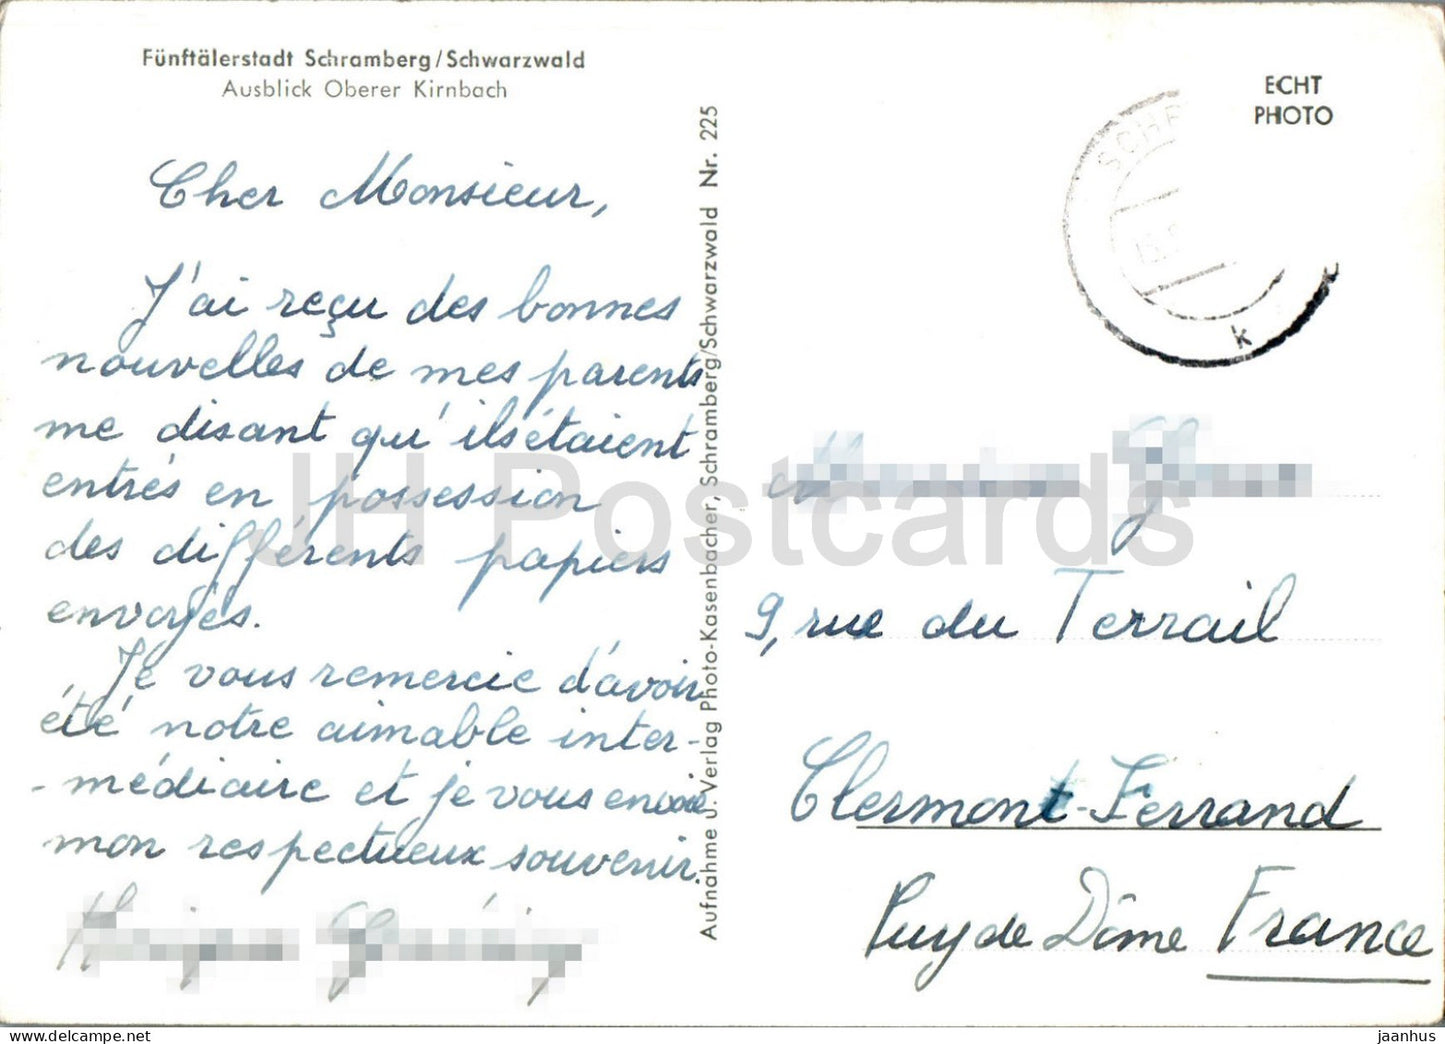 Fünftälerstadt Schramberg/Schwarzwald
Ausblick Oberer Kirnbach
Cher Monsieur,
J'ai reçu des bonnes
nouvelles de mes parents
me disant qu'ils étaient
entrés en possession
des différents papiers
envoyés.
Je vous remercie d'avoir
été notre aimable inter-
-médiaire et je vous envoie
mon respectueux souvenir.
Aufnahme u. Verlag Photo-Kasenbacher, Schramberg/Schwarzwald Nr. 225
ECHT
PHOTO
SCHR
k
9, rue du Terrail
Clermont-Ferrand
Puy de Dôme France
JH Postcards
jaanhus